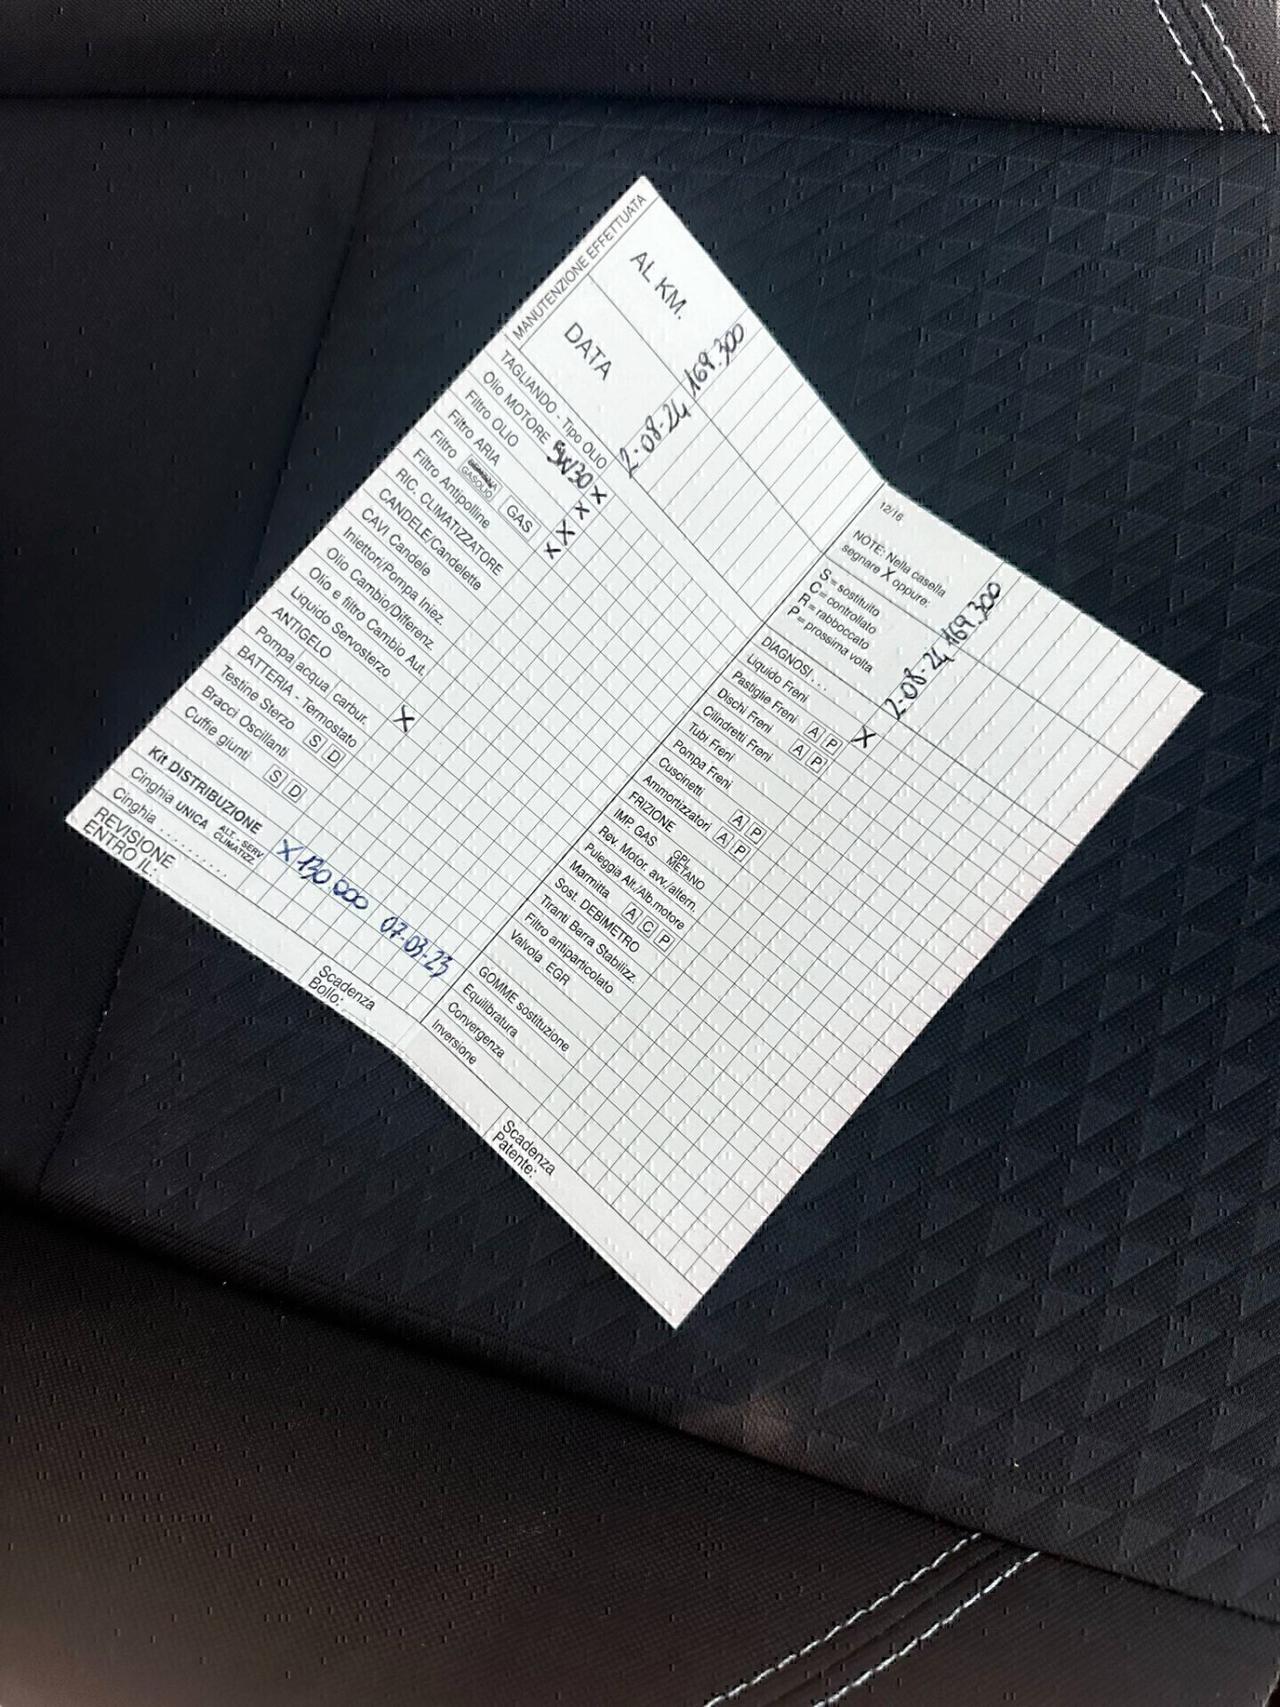 MANUTENZIONE EFFETTUATA
AL KM. 169.300
DATA 2-08-24
TAGLIANDO - Tipo OLIO
Olio MOTORE 5W30 X
Filtro OLIO X
Filtro ARIA X
Filtro GASOLIO GAS X
Filtro Antipolline
RIC. CLIMATIZZATORE
CANDELE/Candelette
CAVI Candele
Iniettori/Pompa Iniez.
Olio Cambio/Differenz.
Olio e filtro Cambio Aut.
Liquido Servosterzo
ANTIGELO X
Pompa acqua carbur.
BATTERIA - Termostato
Testine Sterzo S D
Bracci Oscillanti
Cuffie giunti S D
Kit DISTRIBUZIONE X 130 000 07-03-23
Cinghia UNICA ALT. - SERV. CLIMATIZZ.
Cinghia ...........
REVISIONE
ENTRO IL:
Scadenza
Bollo:
12/16
NOTE: Nella casella
segnare X oppure:
S = sostituito
C = controllato
R = rabboccato
P = prossima volta
2-08-24 169.300
DIAGNOSI . . .
Liquido Freni X
Pastiglie Freni A P
Dischi Freni A P
Cilindretti Freni
Tubi Freni
Pompa Freni
Cuscinetti A P
Ammortizzatori A P
FRIZIONE
IMP GAS GPL METANO
Rev. Motor. avv./altern.
Puleggia Alt./Alb.motore
Marmitta A C P
Sost. DEBIMETRO
Tiranti Barra Stabilizz.
Filtro antiparticolato
Valvola EGR
GOMME sostituzione
Equilibratura
Convergenza
Inversione
Scadenza
Patente: